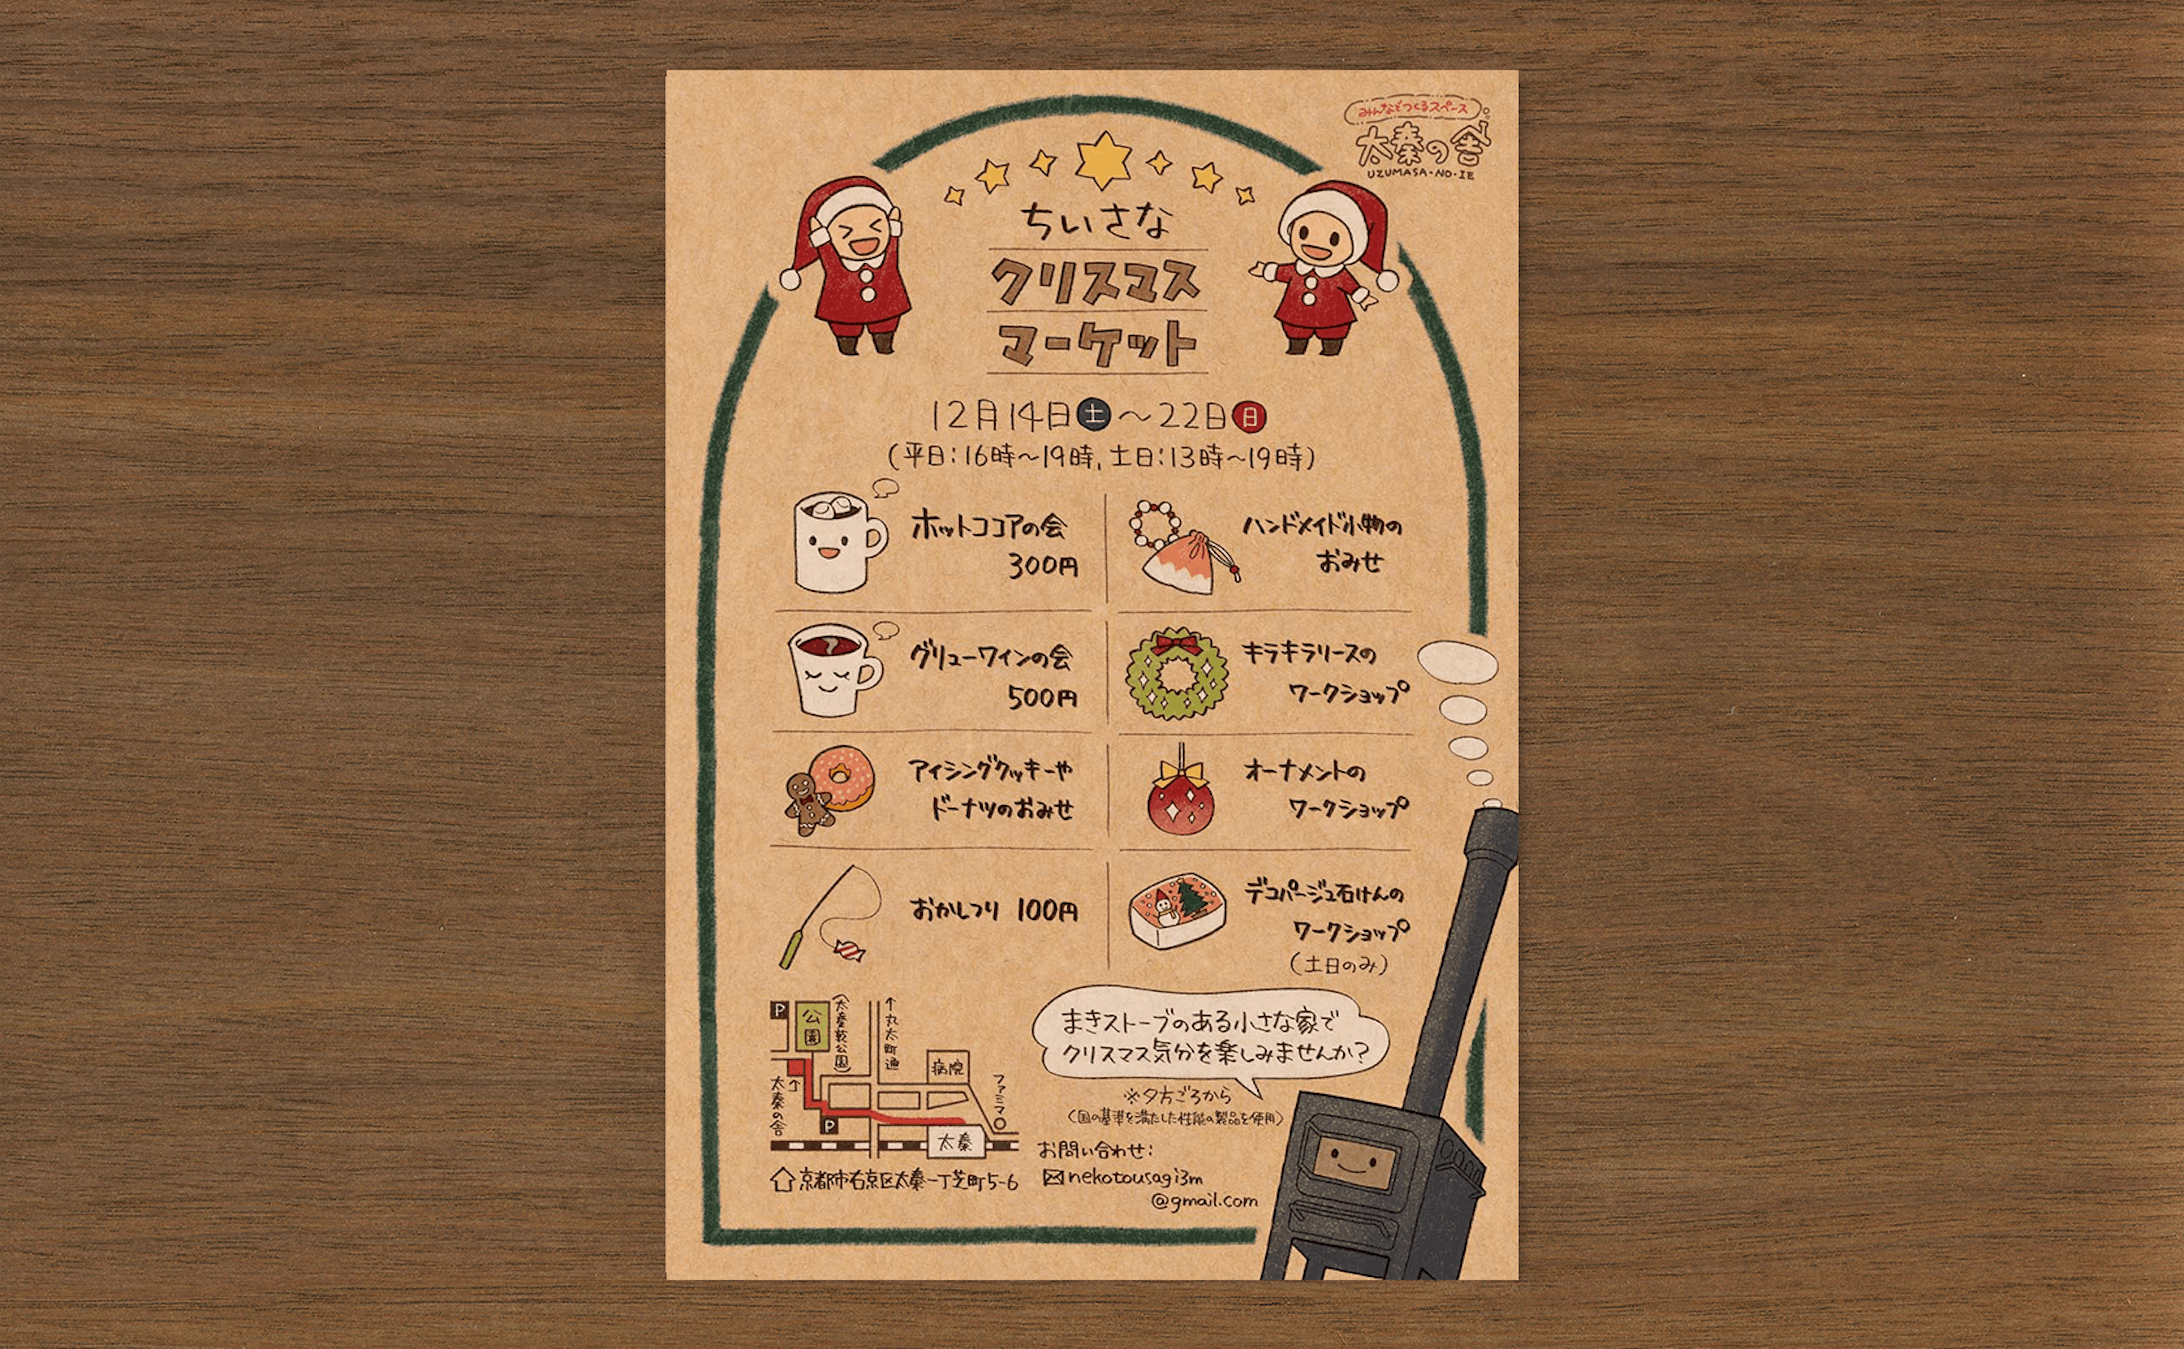 みんなでつくるスペース
太秦の舎
UZUMASA・NO・IE
ちいさな
クリスマス
マーケット
12月14日土～22日日
(平日:16時～19時,土日:13時～19時)
ホットココアの会
300円
ハンドメイド小物の
おみせ
グリューワインの会
500円
キラキラリースの
ワークショップ
アイシングクッキーや
ドーナツのおみせ
オーナメントの
ワークショップ
おかしつり 100円
デコパージュ石けんの
ワークショップ
(土日のみ)
P
公園
(太秦藪公園)
↑丸太町通
病院
ファミマ
太秦の舎
P
太秦
京都市右京区太秦一丁芝町5-6
まきストーブのある小さな家で
クリスマス気分を楽しみませんか?
※夕方ごろから
(国の基準を満たした性能の製品を使用)
お問い合わせ:
nekotousagi3m
@gmail.com